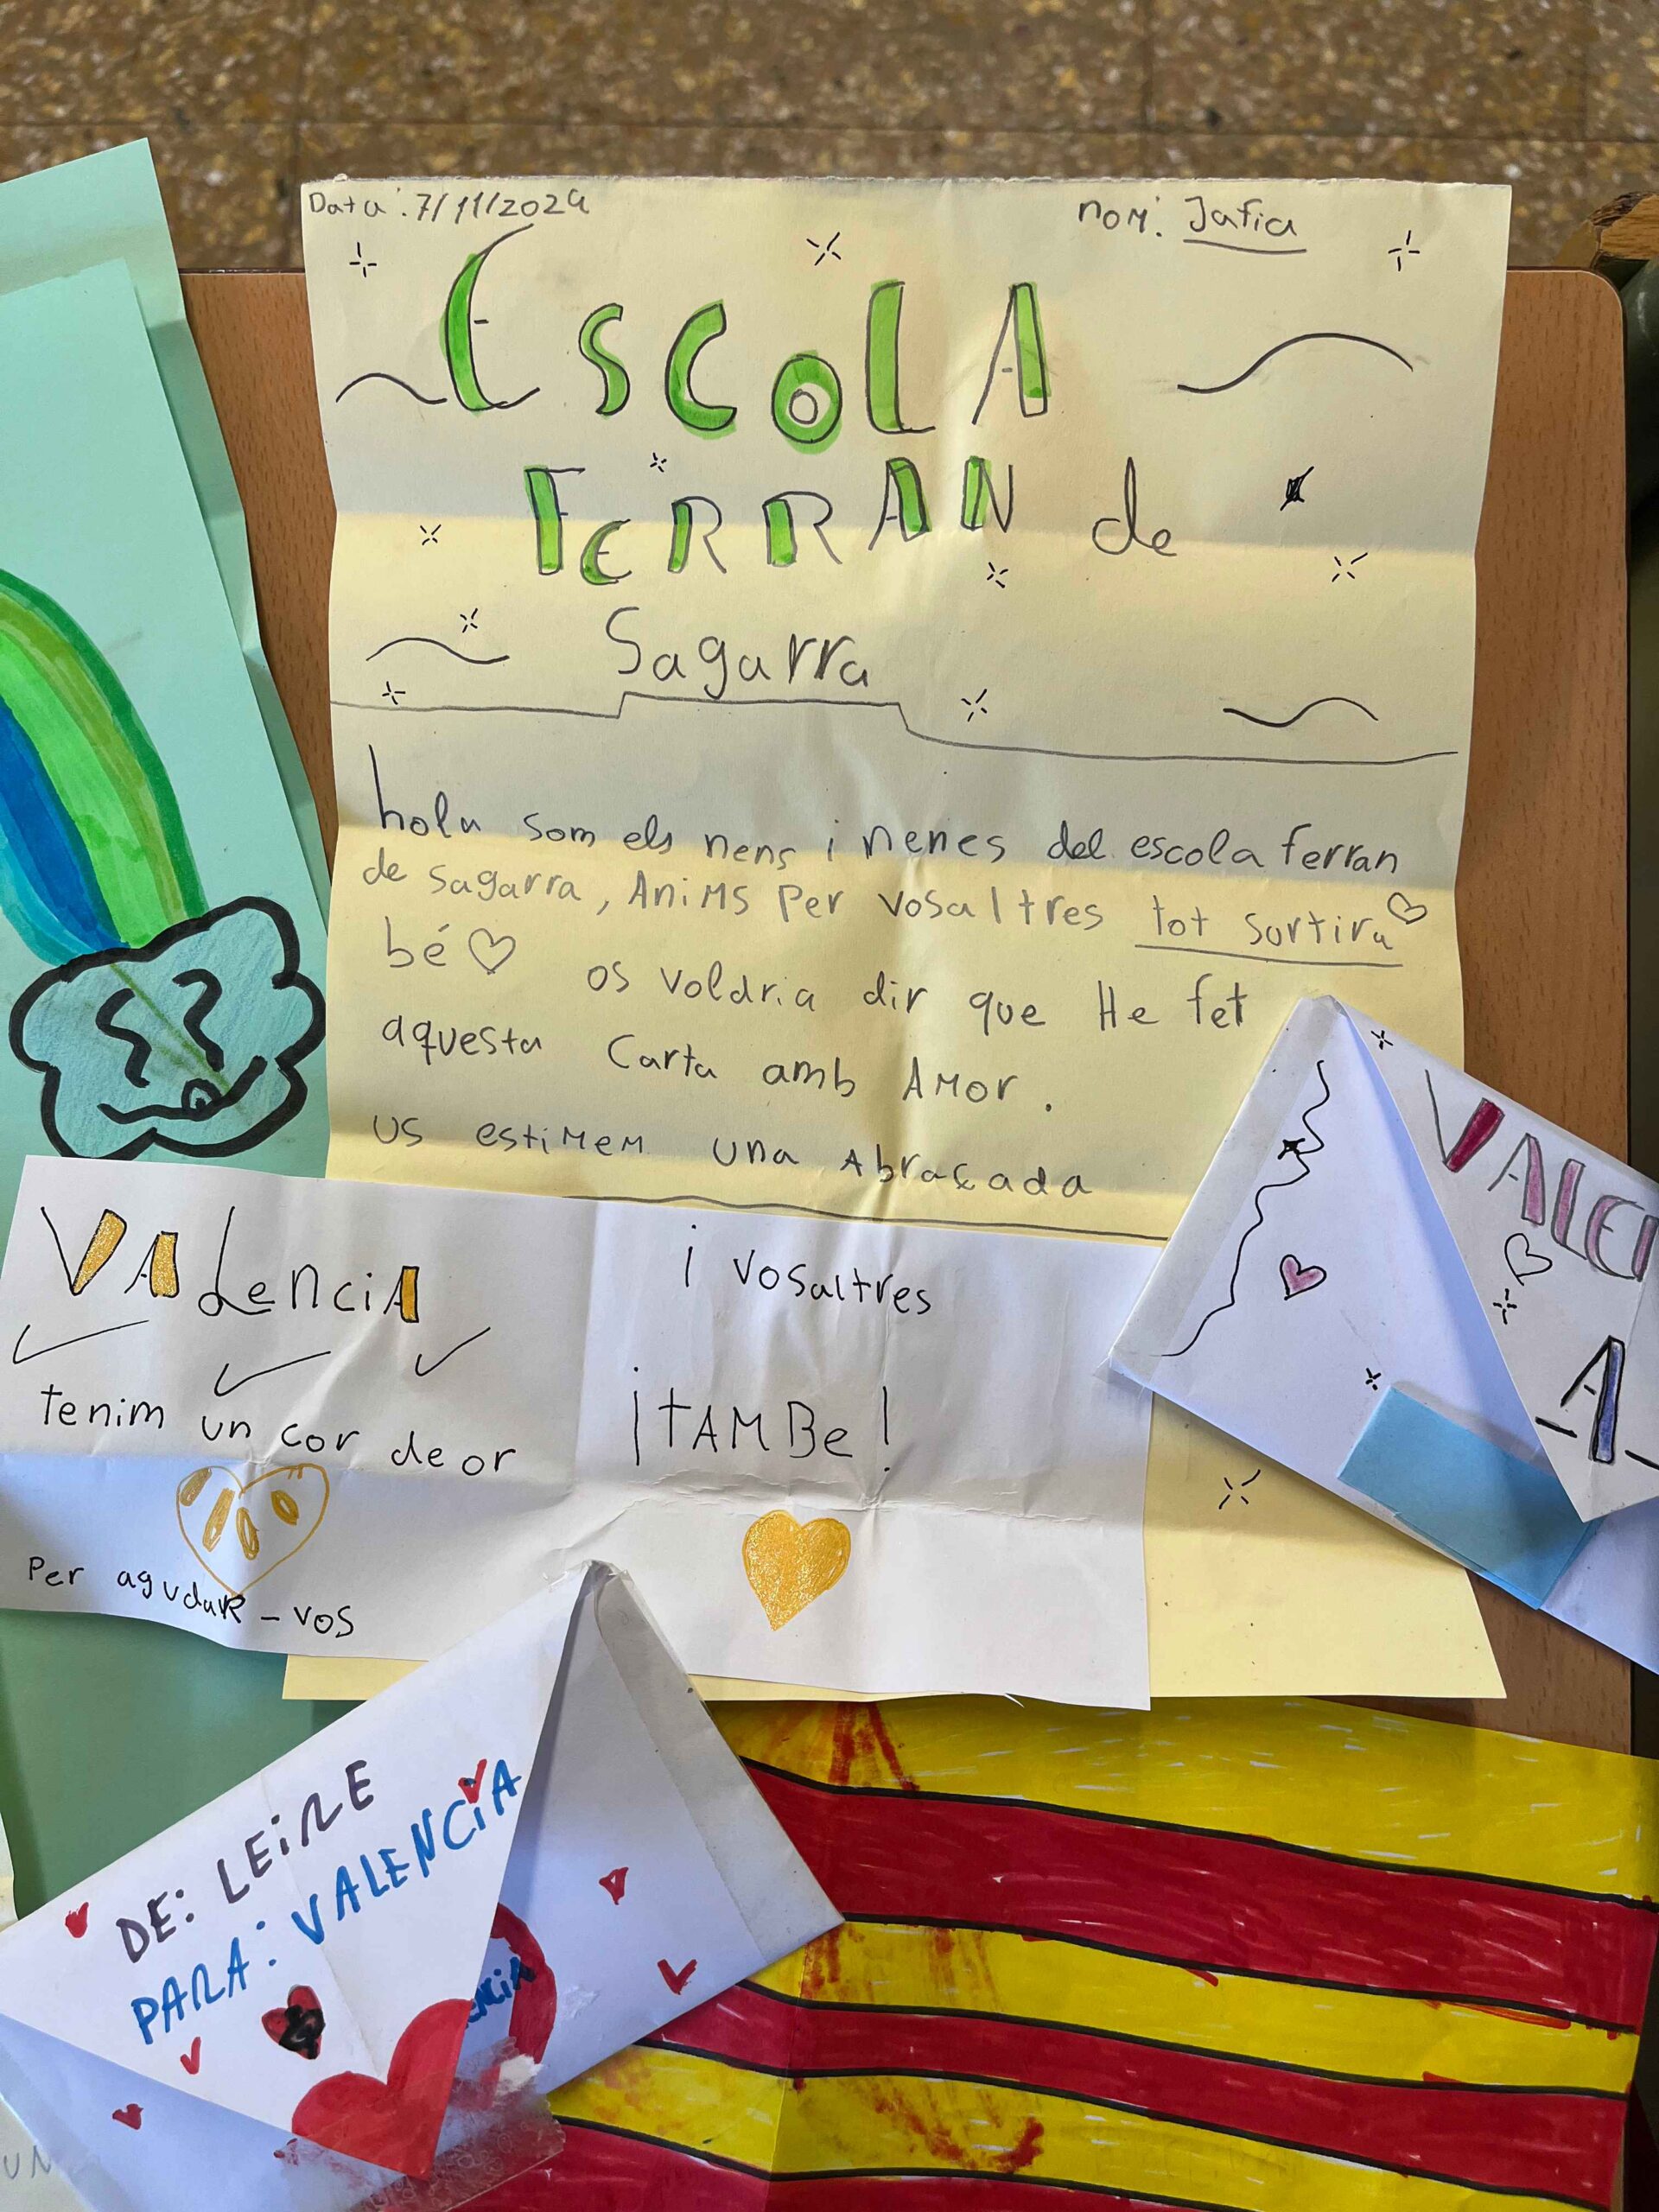 Data: 7/11/2024
nom: Jafia
ESCOLA
FERRAN de
Sagarra
hola som els nens i nenes del escola ferran
de sagarra, Anims Per vosaltres tot sortira
bé os voldria dir que He fet
aquesta Carta amb Amor.
us estimem una Abraçada
VALenciA
tenim un cor de or
Per agudaR-vos
i vosaltres
¡TAMBe!
VALEI
A
DE: LEiRE
PARA: VALENCiA
ENCiA
UN